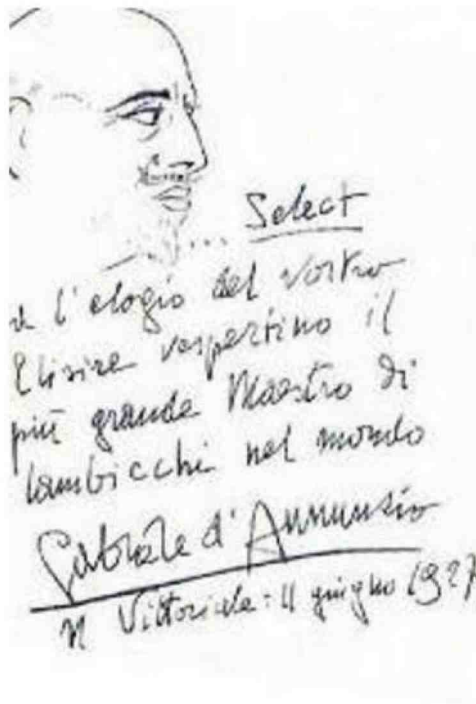 Select
l'elogio del vostro
Elisire vespertino il
più grande Maestro di
lambicchi nel mondo
Gabriele d'Annunzio
Il Vittoriale: 11 giugno 1927